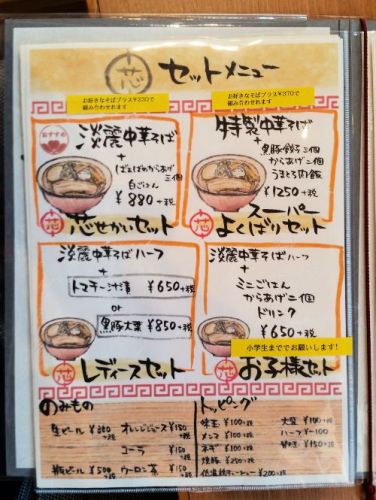 芯 セットメニュー
お好きなそばプラス¥330で
組み合わせれます
おすすめ
淡麗中華そば
+
ばぁばのからあげ
三個
白ごはん
¥880+税
芯 芯せかいセット
お好きなそばプラス¥370で
組み合わせれます
特製中華そば
+
黒豚餃子三個
からあげ二個
うまとろ肉飯
¥1250+税
芯 スーパー
よくばりセット
淡麗中華そばハーフ
+
¥650+税
or
¥850+税
芯 レディースセット
淡麗中華そばハーフ
+
ミニごはん
からあげ二個
ドリンク
¥650+税
小学生まででお願いします!
芯 お子様セット
のみもの
生ビール ¥300+税
オレンジジュース ¥150+税
コーラ ¥150
瓶ビール ¥500+税
ウーロン茶 ¥150+税
トッピング
味玉 ¥100+税
メンマ ¥100+税
ネギ ¥100+税
大盛 ¥100+税
ハーフ ¥-100
¥150+税
¥200+税